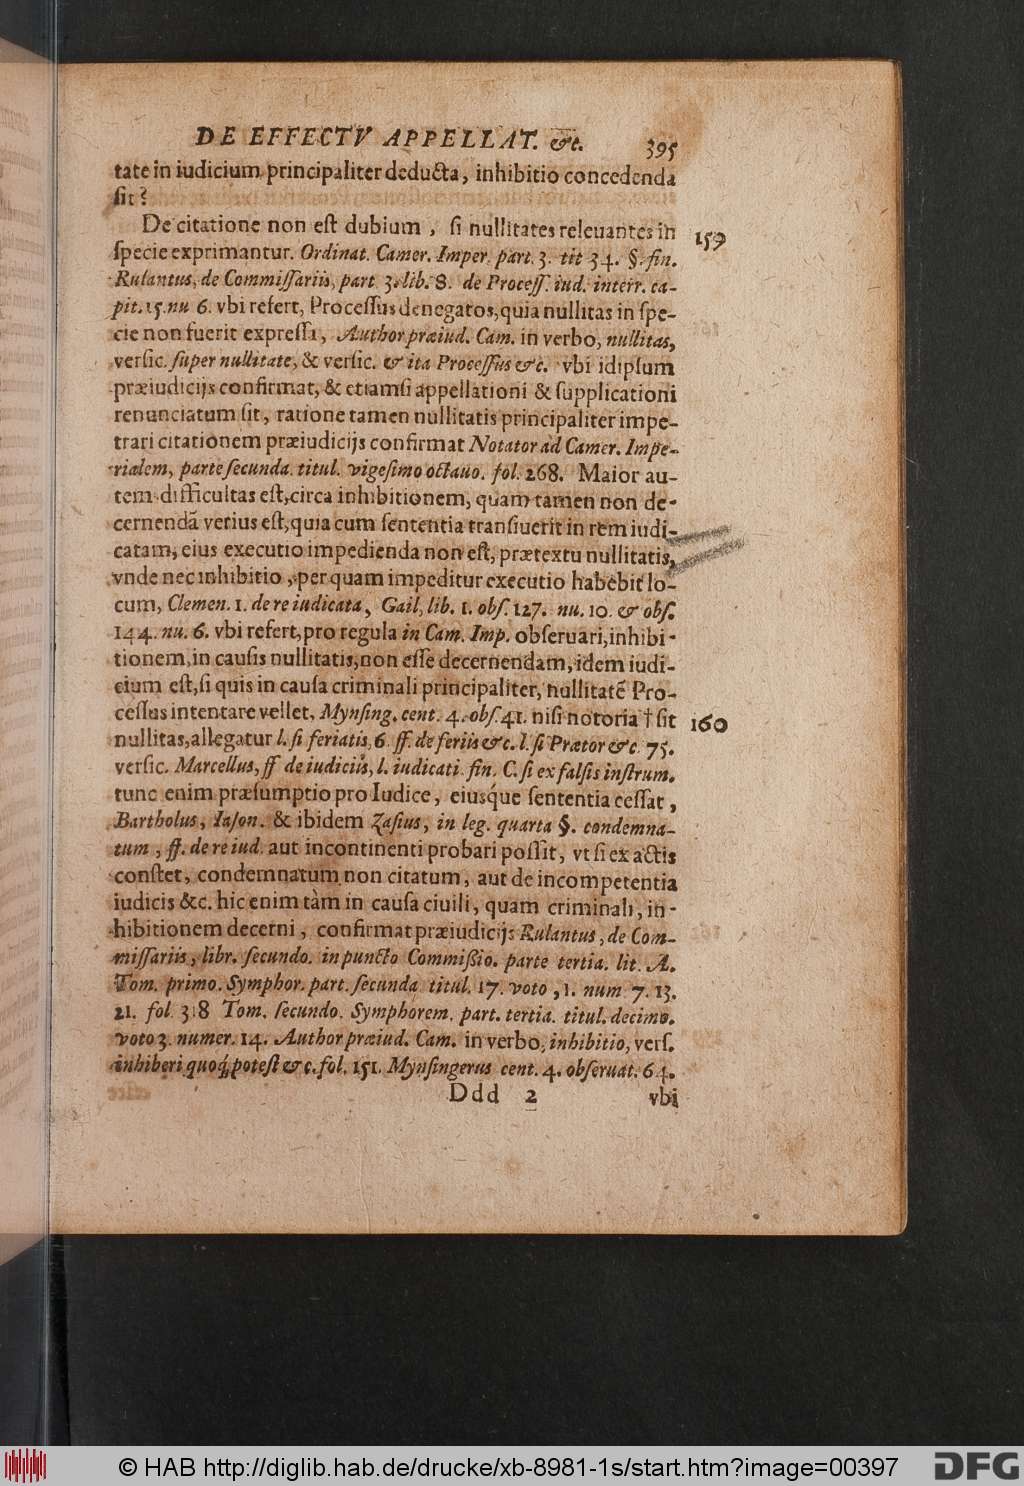 DE EFFECTV APPELLAT. &c. 395
tate in iudicium principaliter deducta, inhibitio concedenda
ſit?
De citatione non eſt dubium, ſi nullitates releuantes in 159
ſpecie exprimantur. Ordinat. Camer. Imper. part. 3. tit 34. §. fin.
Rulantus, de Commiſſariis, part 3. lib. 8. de Proceſſ. iud. interr. ca-
pit. 15. nu 6. vbi refert, Proceſſus denegatos, quia nullitas in ſpe-
cie non fuerit expreſſa, Author præiud. Cam. in verbo, nullitas,
verſic. ſuper nullitate, & verſic. & ita Proceſſus &c. vbi idipſum
præiudicijs confirmat, & etiamſi appellationi & ſupplicationi
renunciatum ſit, ratione tamen nullitatis principaliter impe-
trari citationem præiudicijs confirmat Notator ad Camer. Impe-
rialem, parte ſecunda. titul. vigeſimo octauo. fol. 268. Maior au-
tem difficultas eſt, circa inhibitionem, quam tamen non de-
cernendā verius eſt, quia cum ſententia tranſiuerit in rem iudi-
catam, eius executio impedienda non eſt, prætextu nullitatis,
vnde nec inhibitio, per quam impeditur executio habebit lo-
cum, Clemen. 1. de re iudicata, Gail, lib. 1. obſ. 127. nu. 10. & obſ.
144. nu. 6. vbi refert, pro regula in Cam. Imp. obſeruari, inhibi-
tionem, in cauſis nullitatis, non eſſe decernendam, idem iudi-
cium eſt, ſi quis in cauſa criminali principaliter, nullitatē Pro-
ceſſus intentare vellet, Mynſing. cent. 4. obſ. 41. niſi notoria † ſit 160
nullitas, allegatur l. ſi feriatis, 6. ff. de feriis &c. l. ſi Prætor &c. 75.
verſic. Marcellus, ff de iudiciis, l. iudicati. fin. C. ſi ex falſis inſtrum.
tunc enim præſumptio pro Iudice, eiusq́ue ſententia ceſſat,
Bartholus, Iaſon. & ibidem Zaſius, in leg. quarta §. condemna-
tum, ff. de re iud. aut incontinenti probari poſſit, vt ſi ex actis
conſtet, condemnatum non citatum, aut de incompetentia
iudicis &c. hic enim tàm in cauſa ciuili, quam criminali, in-
hibitionem decerni, confirmat præiudicijs Rulantus, de Com-
miſſariis, libr. ſecundo. in puncto Commißio. parte tertia. lit. A.
Tom. primo. Symphor. part. ſecunda titul. 17. voto, 1. num 7. 13.
21. fol. 318 Tom. ſecundo. Symphorem. part. tertia. titul. decimo.
voto 3. numer. 14. Author præiud. Cam. in verbo, inhibitio, verſ.
inhiberi quoq́; poteſt &c. fol. 151. Mynſingerus cent. 4. obſeruat. 64.
Ddd 2 vbi
© HAB http://diglib.hab.de/drucke/xb-8981-1s/start.htm?image=00397 DFG